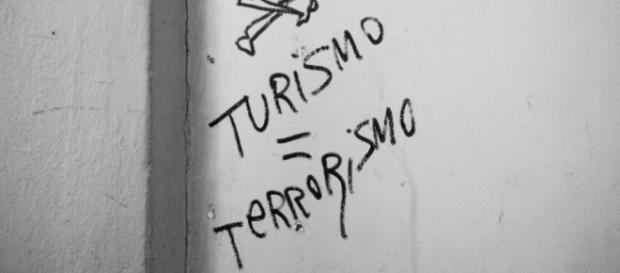 TURiSMO
=
TeRRORiSMO